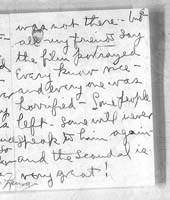 was not there - but
all my friends say
the film portrayed
Every know nice -
and every one was
horrified - Some people
left some will never
speak to him again
and the Scandal is
very great!